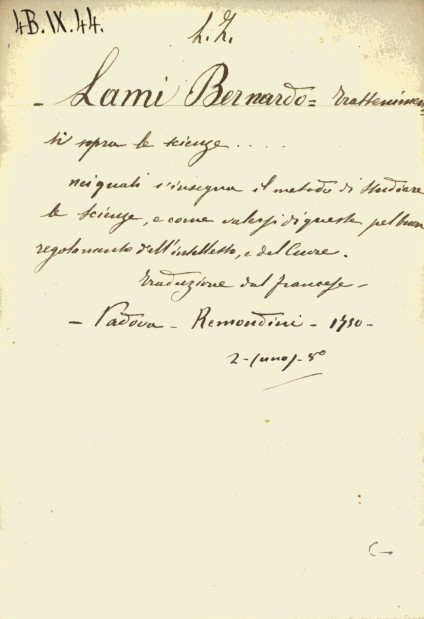 4B.IX.44.
h. Z.
- Lami Bernardo = Trattenimen=
ti sopra le scienze....
nei quali s'insegna il metodo di studiare
le scienze, e come valersi di queste pel buon
regolamento dell'intelletto, e del Cuore.
Traduzione dal francese -
- Padova - Remondini - 1730 -
2 - (uno) - 8°